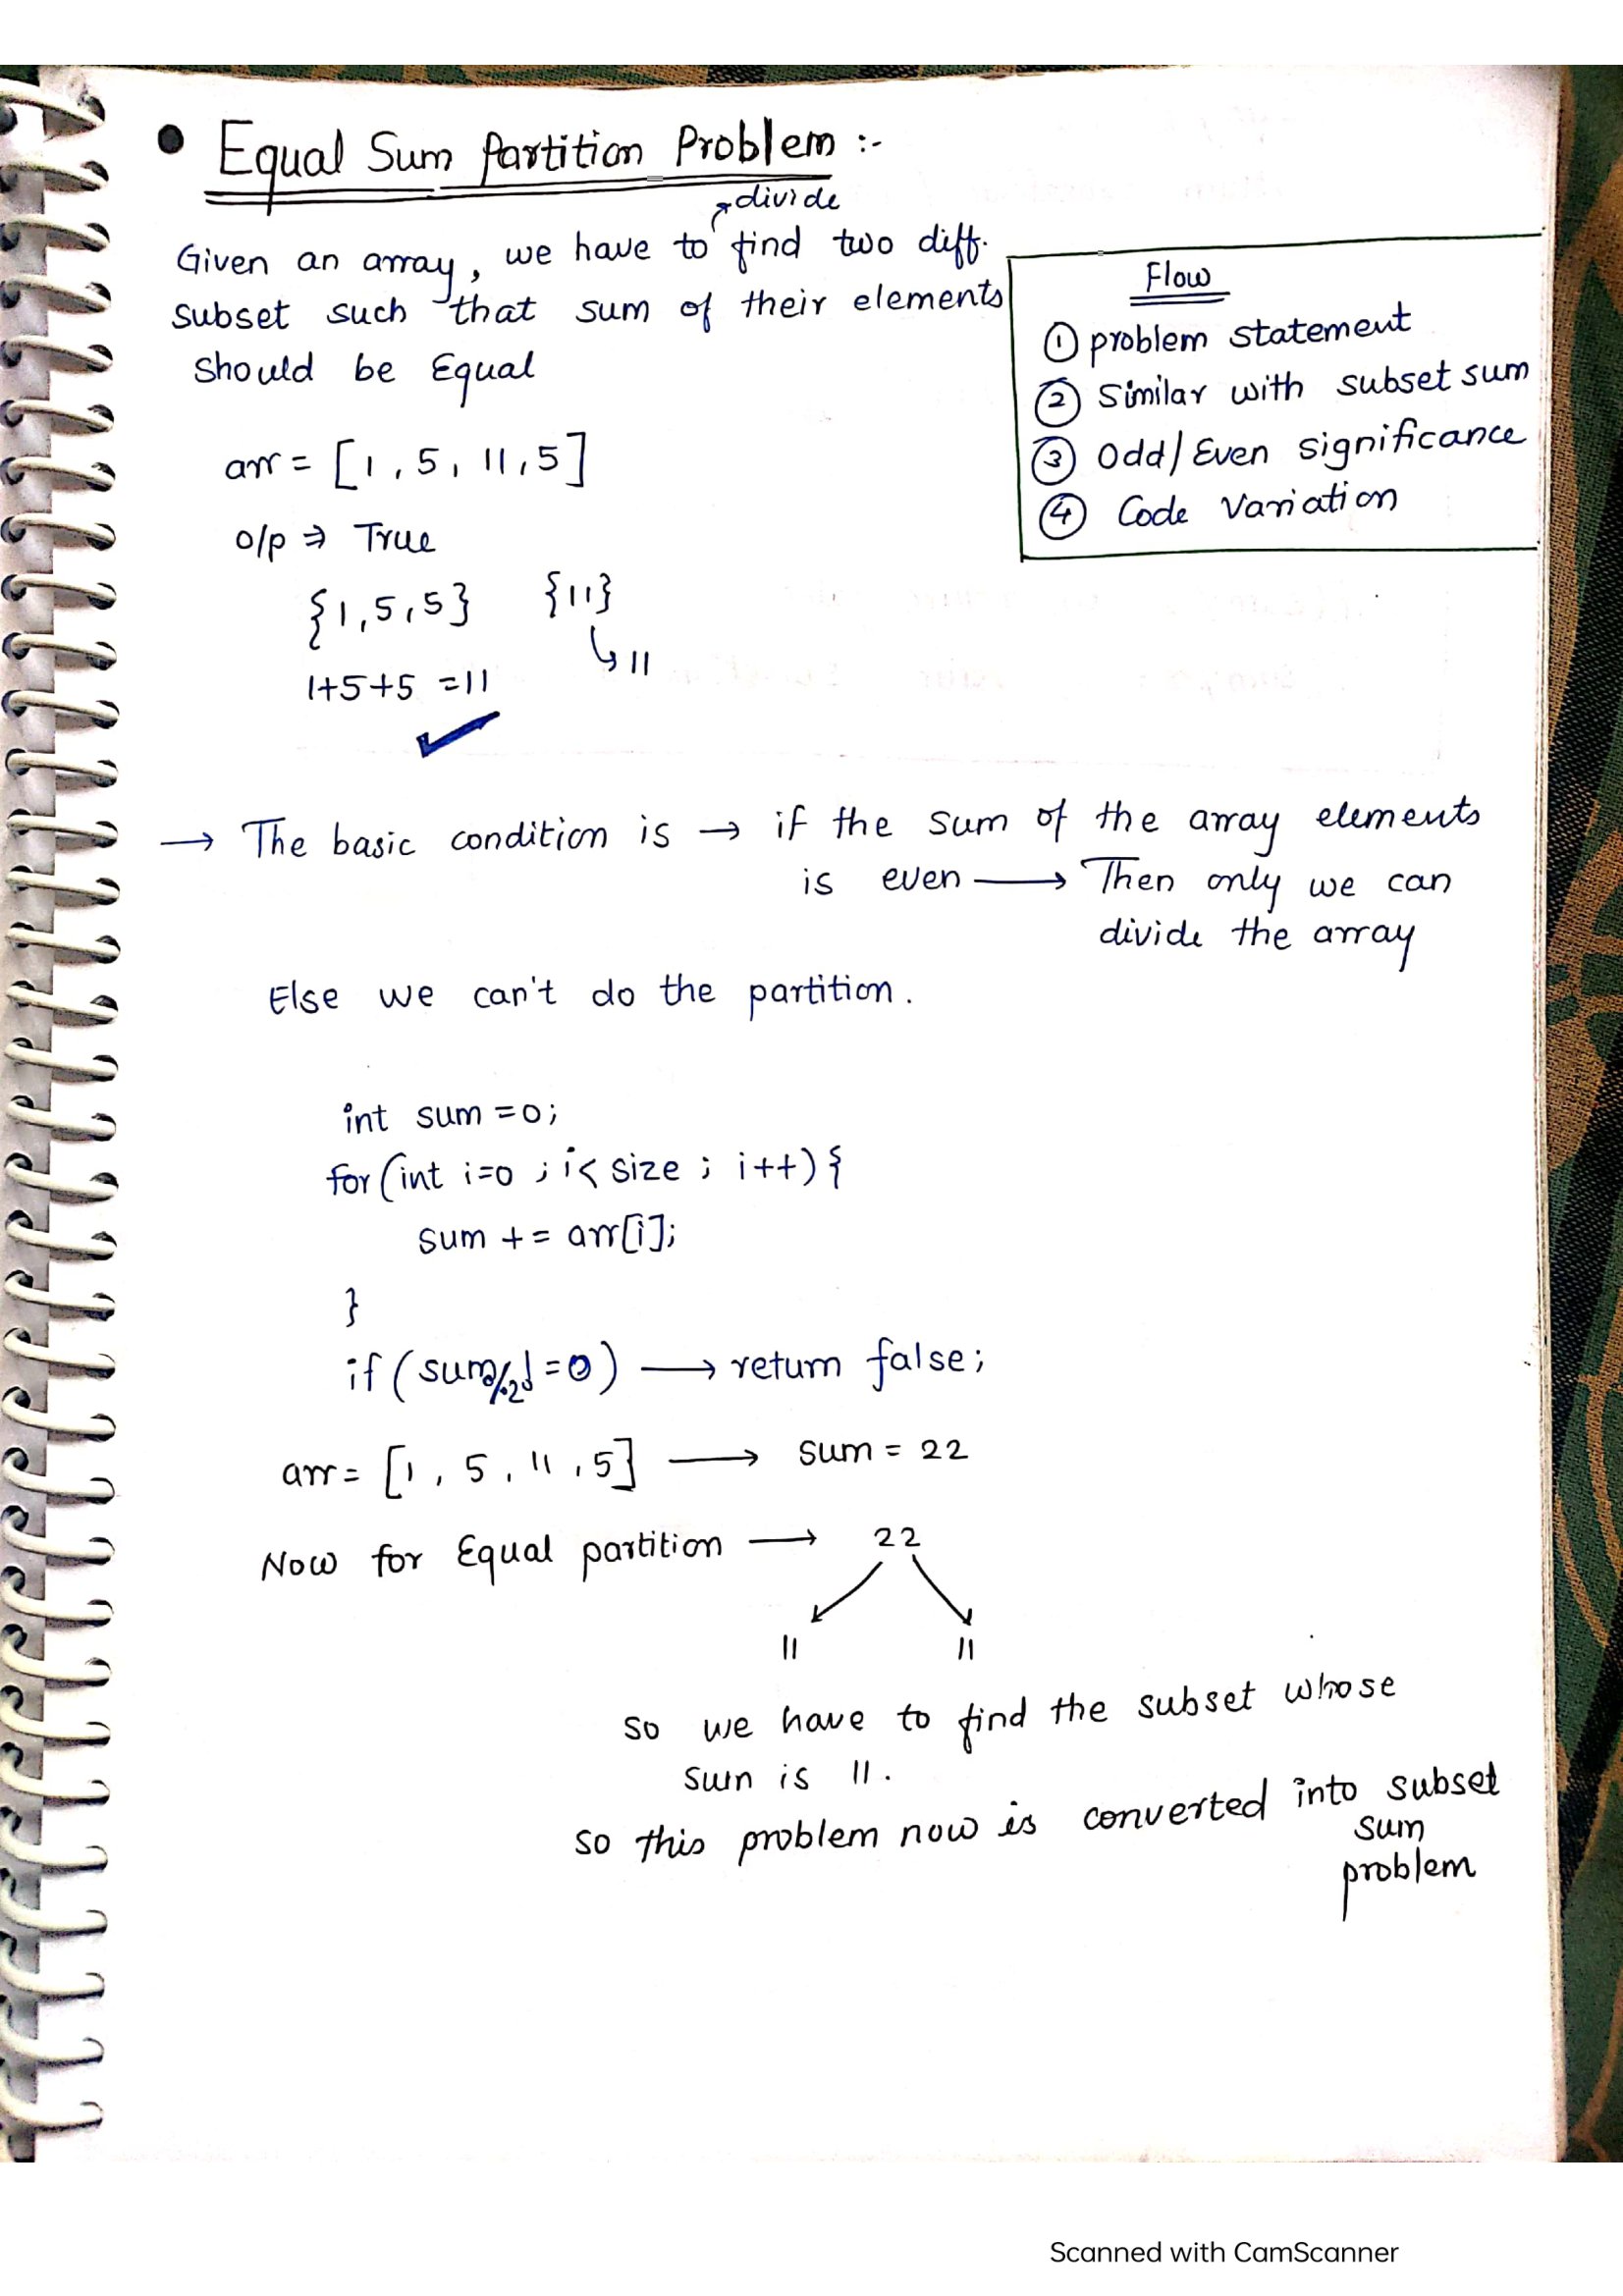 • Equal Sum Partition Problem :-
divide
Given an array, we have to find two diff.
subset such that sum of their elements
should be Equal
Flow
① problem statement
② Similar with subset sum
③ Odd/Even significance
④ Code Variation
arr = [1, 5, 11, 5]
o/p ⇒ True
{1, 5, 5} {11}
↳ 11
1+5+5 = 11
✓
→ The basic condition is → if the sum of the array elements
is even → Then only we can
divide the array
Else we can't do the partition.
int sum = 0;
for (int i=0 ; i< size ; i++) {
sum += arr[i];
}
if (sum%2 != 0) → return false;
arr = [1, 5, 11, 5] → sum = 22
Now for Equal partition → 22
11 11
so we have to find the subset whose
sum is 11.
so this problem now is converted into subset
sum
problem
Scanned with CamScanner